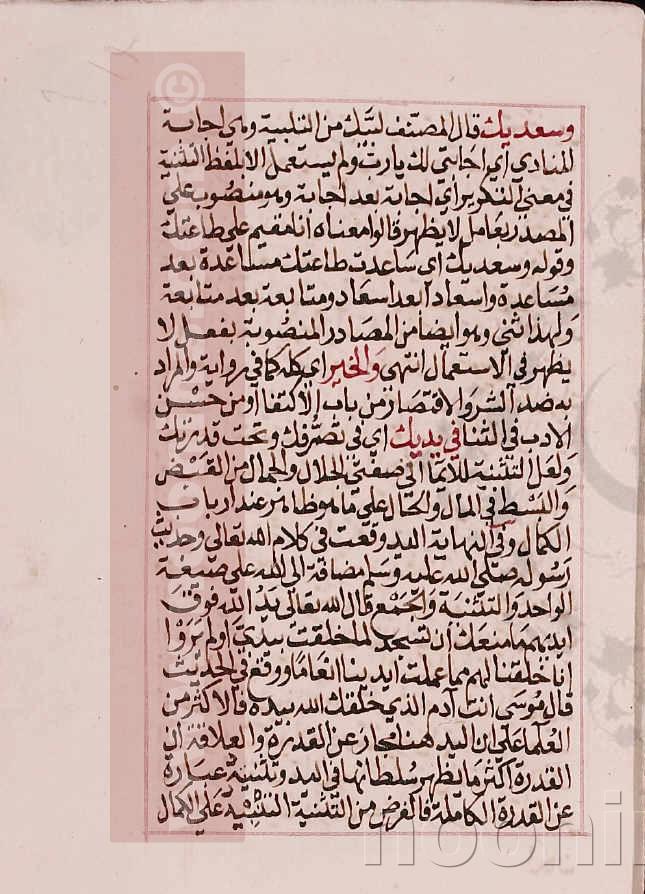 وسعديك قال المصنف لبيك من التلبية وهي اجابة
المنادي أي اجابتي لك يارب ولم يستعمل الا بلفظ التثنية
في معنى التكرير أي اجابة بعد اجابة وهو منصوب على
المصدر بعامل لا يظهر قالوا معناه انا مقيم على طاعتك
وقوله وسعديك أي ساعدت طاعتك مساعدة بعد
مساعدة واسعادا بعد اسعاد ومتابعة بعد متابعة
ولهذا ثني وهو ايضا من المصادر المنصوبة بفعل لا
يظهر في الاستعمال انتهى والخير أي كله كما في رواية والمراد
به ضد الشر والاقتصار من باب الاكتفا أو من حسن
الادب في الثنا في يديك أي في تصرفك وتحت قدرتك
ولعل التثنية للايما الى صفتي الجلال والجمال من القبض
والبسط في المال والحال على ما هو ظاهر عند ارباب
الكمال وفي النهاية اليد وقعت في كلام الله تعالى وحديث
رسوله صلى الله عليه وسلم مضافة الى الله على صيغة
الواحد والتثنية والجمع قال الله تعالى يد الله فوق
ايديهم ما منعك ان تسجد لما خلقت بيدي أولم يروا
انا خلقنا لهم مما عملت ايدينا انعاما ووقع في الحديث
قال موسى انت آدم الذي خلقك الله بيده فالاكثر من
العلما على ان اليد هنا مجاز عن القدرة والعلاقة ان
القدرة اكثر ما يظهر سلطانها في اليد وتثنيته عبارة
عن القدرة الكاملة فالغرض من التثنية التنبيه على الكمال